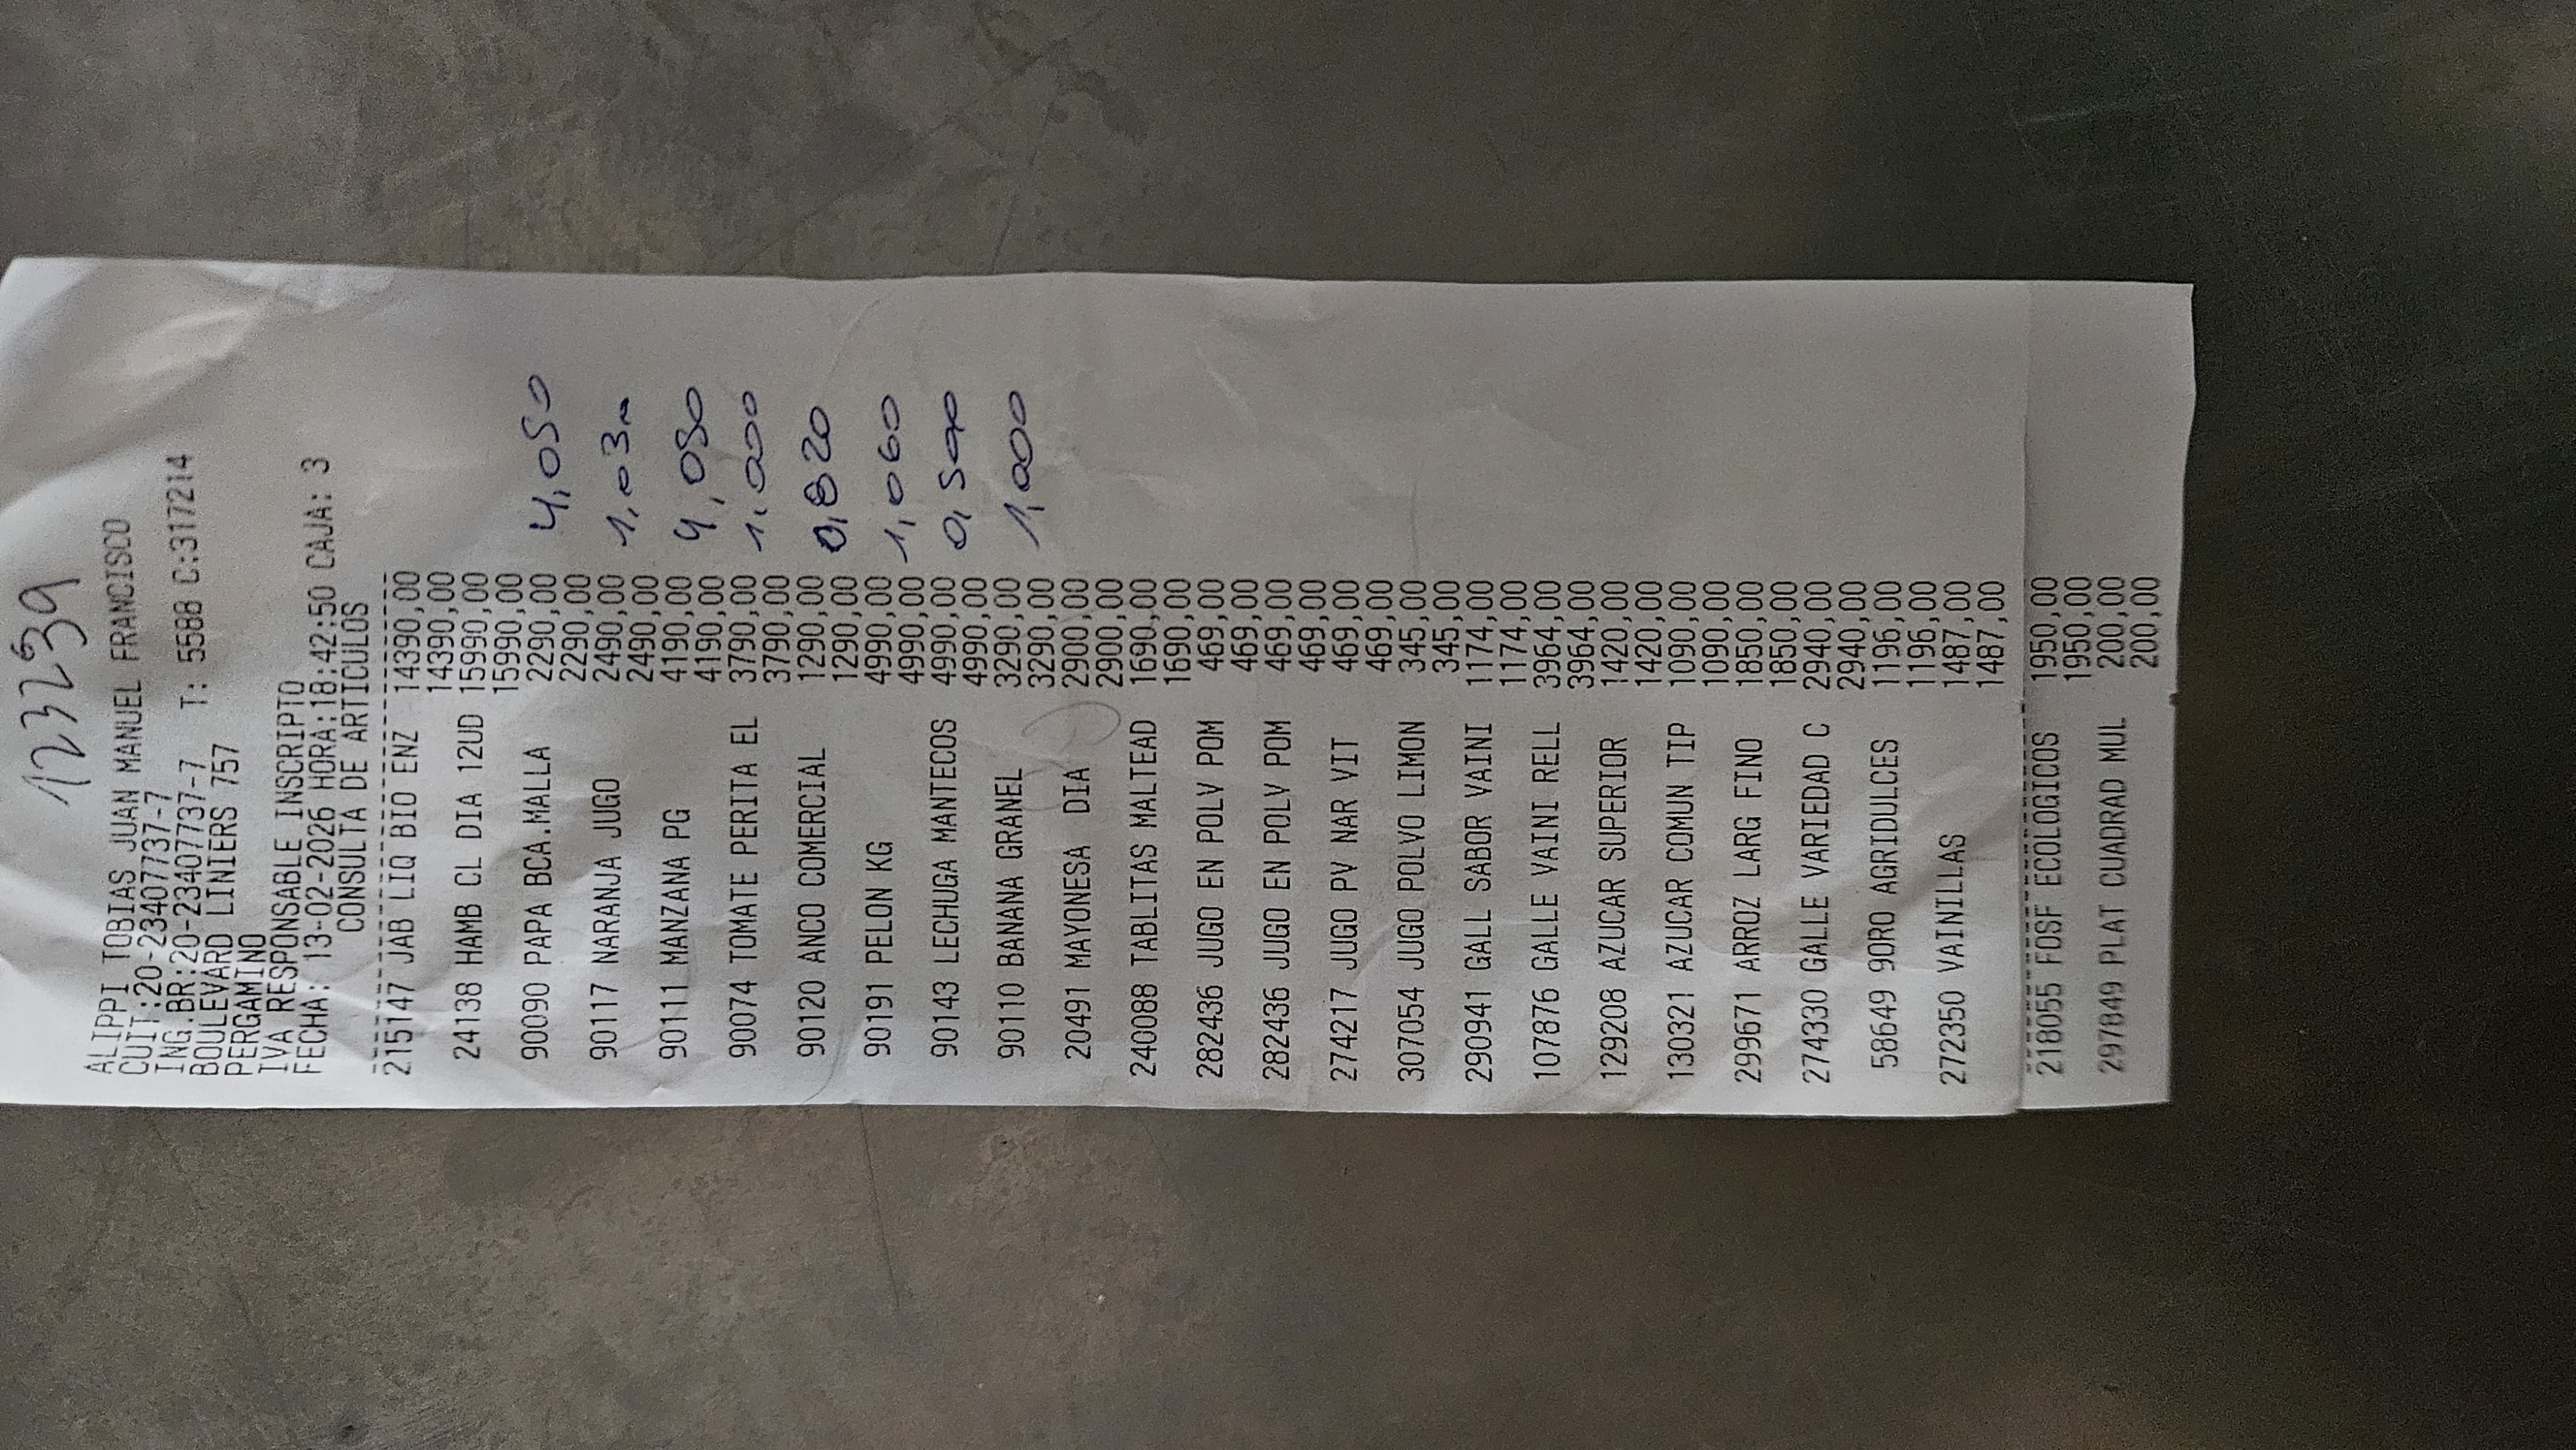 123239
ALIPPI TOBIAS JUAN MANUEL FRANCISCO
CUIT:20-23407737-7
ING.BR:20-23407737-7 T: 5588 C:317214
BOULEVARD LINIERS 757
PERGAMINO
IVA RESPONSABLE INSCRIPTO
FECHA: 13-02-2026 HORA:18:42:50 CAJA: 3
CONSULTA DE ARTICULOS
215147 JAB LIQ BIO ENZ 14390,00
14390,00
24138 HAMB CL DIA 12UD 15990,00
15990,00
90090 PAPA BCA.MALLA 2290,00 4,050
2290,00
90117 NARANJA JUGO 2490,00
2490,00
90111 MANZANA PG 4190,00 4,050
4190,00
90074 TOMATE PERITA EL 3790,00 1,000
3790,00
90120 ANCO COMERCIAL 1290,00 0,820
1290,00
90191 PELON KG 4990,00 1,060
4990,00
90143 LECHUGA MANTECOS 4990,00 0,500
4990,00
90110 BANANA GRANEL 3290,00 1,000
3290,00
20491 MAYONESA DIA 2900,00
2900,00
240088 TABLITAS MALTEAD 1690,00
1690,00
282436 JUGO EN POLV POM 469,00
469,00
282436 JUGO EN POLV POM 469,00
469,00
274217 JUGO PV NAR VIT 469,00
469,00
307054 JUGO POLVO LIMON 345,00
345,00
290941 GALL SABOR VAINI 1174,00
1174,00
107876 GALLE VAINI RELL 3964,00
3964,00
129208 AZUCAR SUPERIOR 1420,00
1420,00
130321 AZUCAR COMUN TIP 1090,00
1090,00
299671 ARROZ LARG FINO 1850,00
1850,00
274330 GALLE VARIEDAD C 2940,00
2940,00
58649 9ORO AGRIDULCES 1196,00
1196,00
272350 VAINILLAS 1487,00
1487,00
218055 FOSF ECOLOGICOS 1950,00
1950,00
297849 PLAT CUADRAD MUL 200,00
200,00